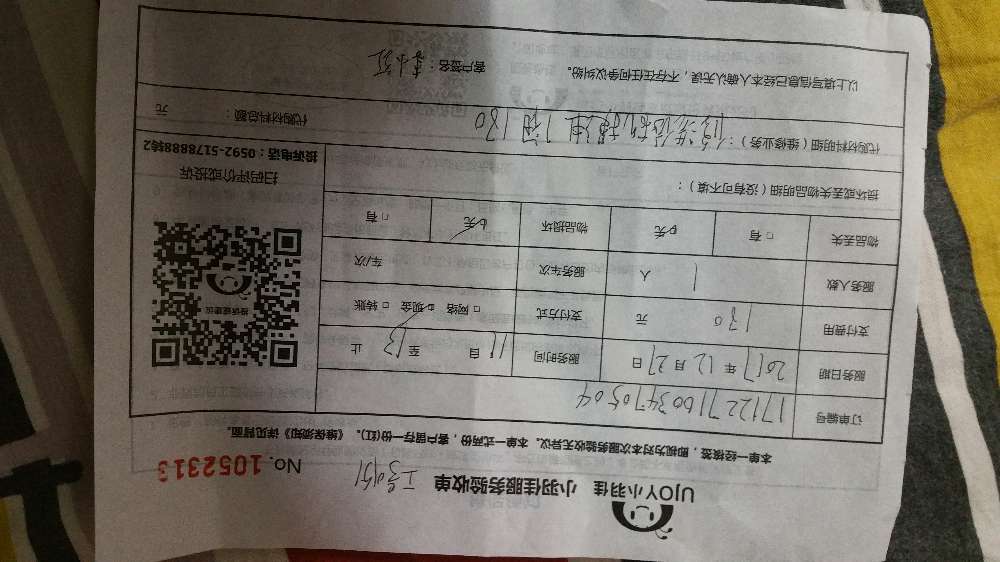 UJOY小羽佳 小羽佳服务验收单 No. 1052313
本单一经核签，即视为对本次服务验收无异议。本单一式两份，客户留存一份(红)。《维保须知》详见背面。
订单编号 17122716034705 04
服务日期 2017年12月27日 服务时间 11自 至13 止
支付费用 130 元 支付方式 □网络 □现金 □转账
服务人数 1 人 服务车次 车/次
物品丢失 □有 □无 物品损坏 □无 □有
损坏或丢失物品明细（没有可不填）：
代购材料明细（维修业务）： 130
代购材料总额： 元
以上填写信息已经本人确认无误，不存在任何争议纠纷。 客户签名：李小红
投诉建议
扫码评价或投诉
投诉电话：0592-5178888转2